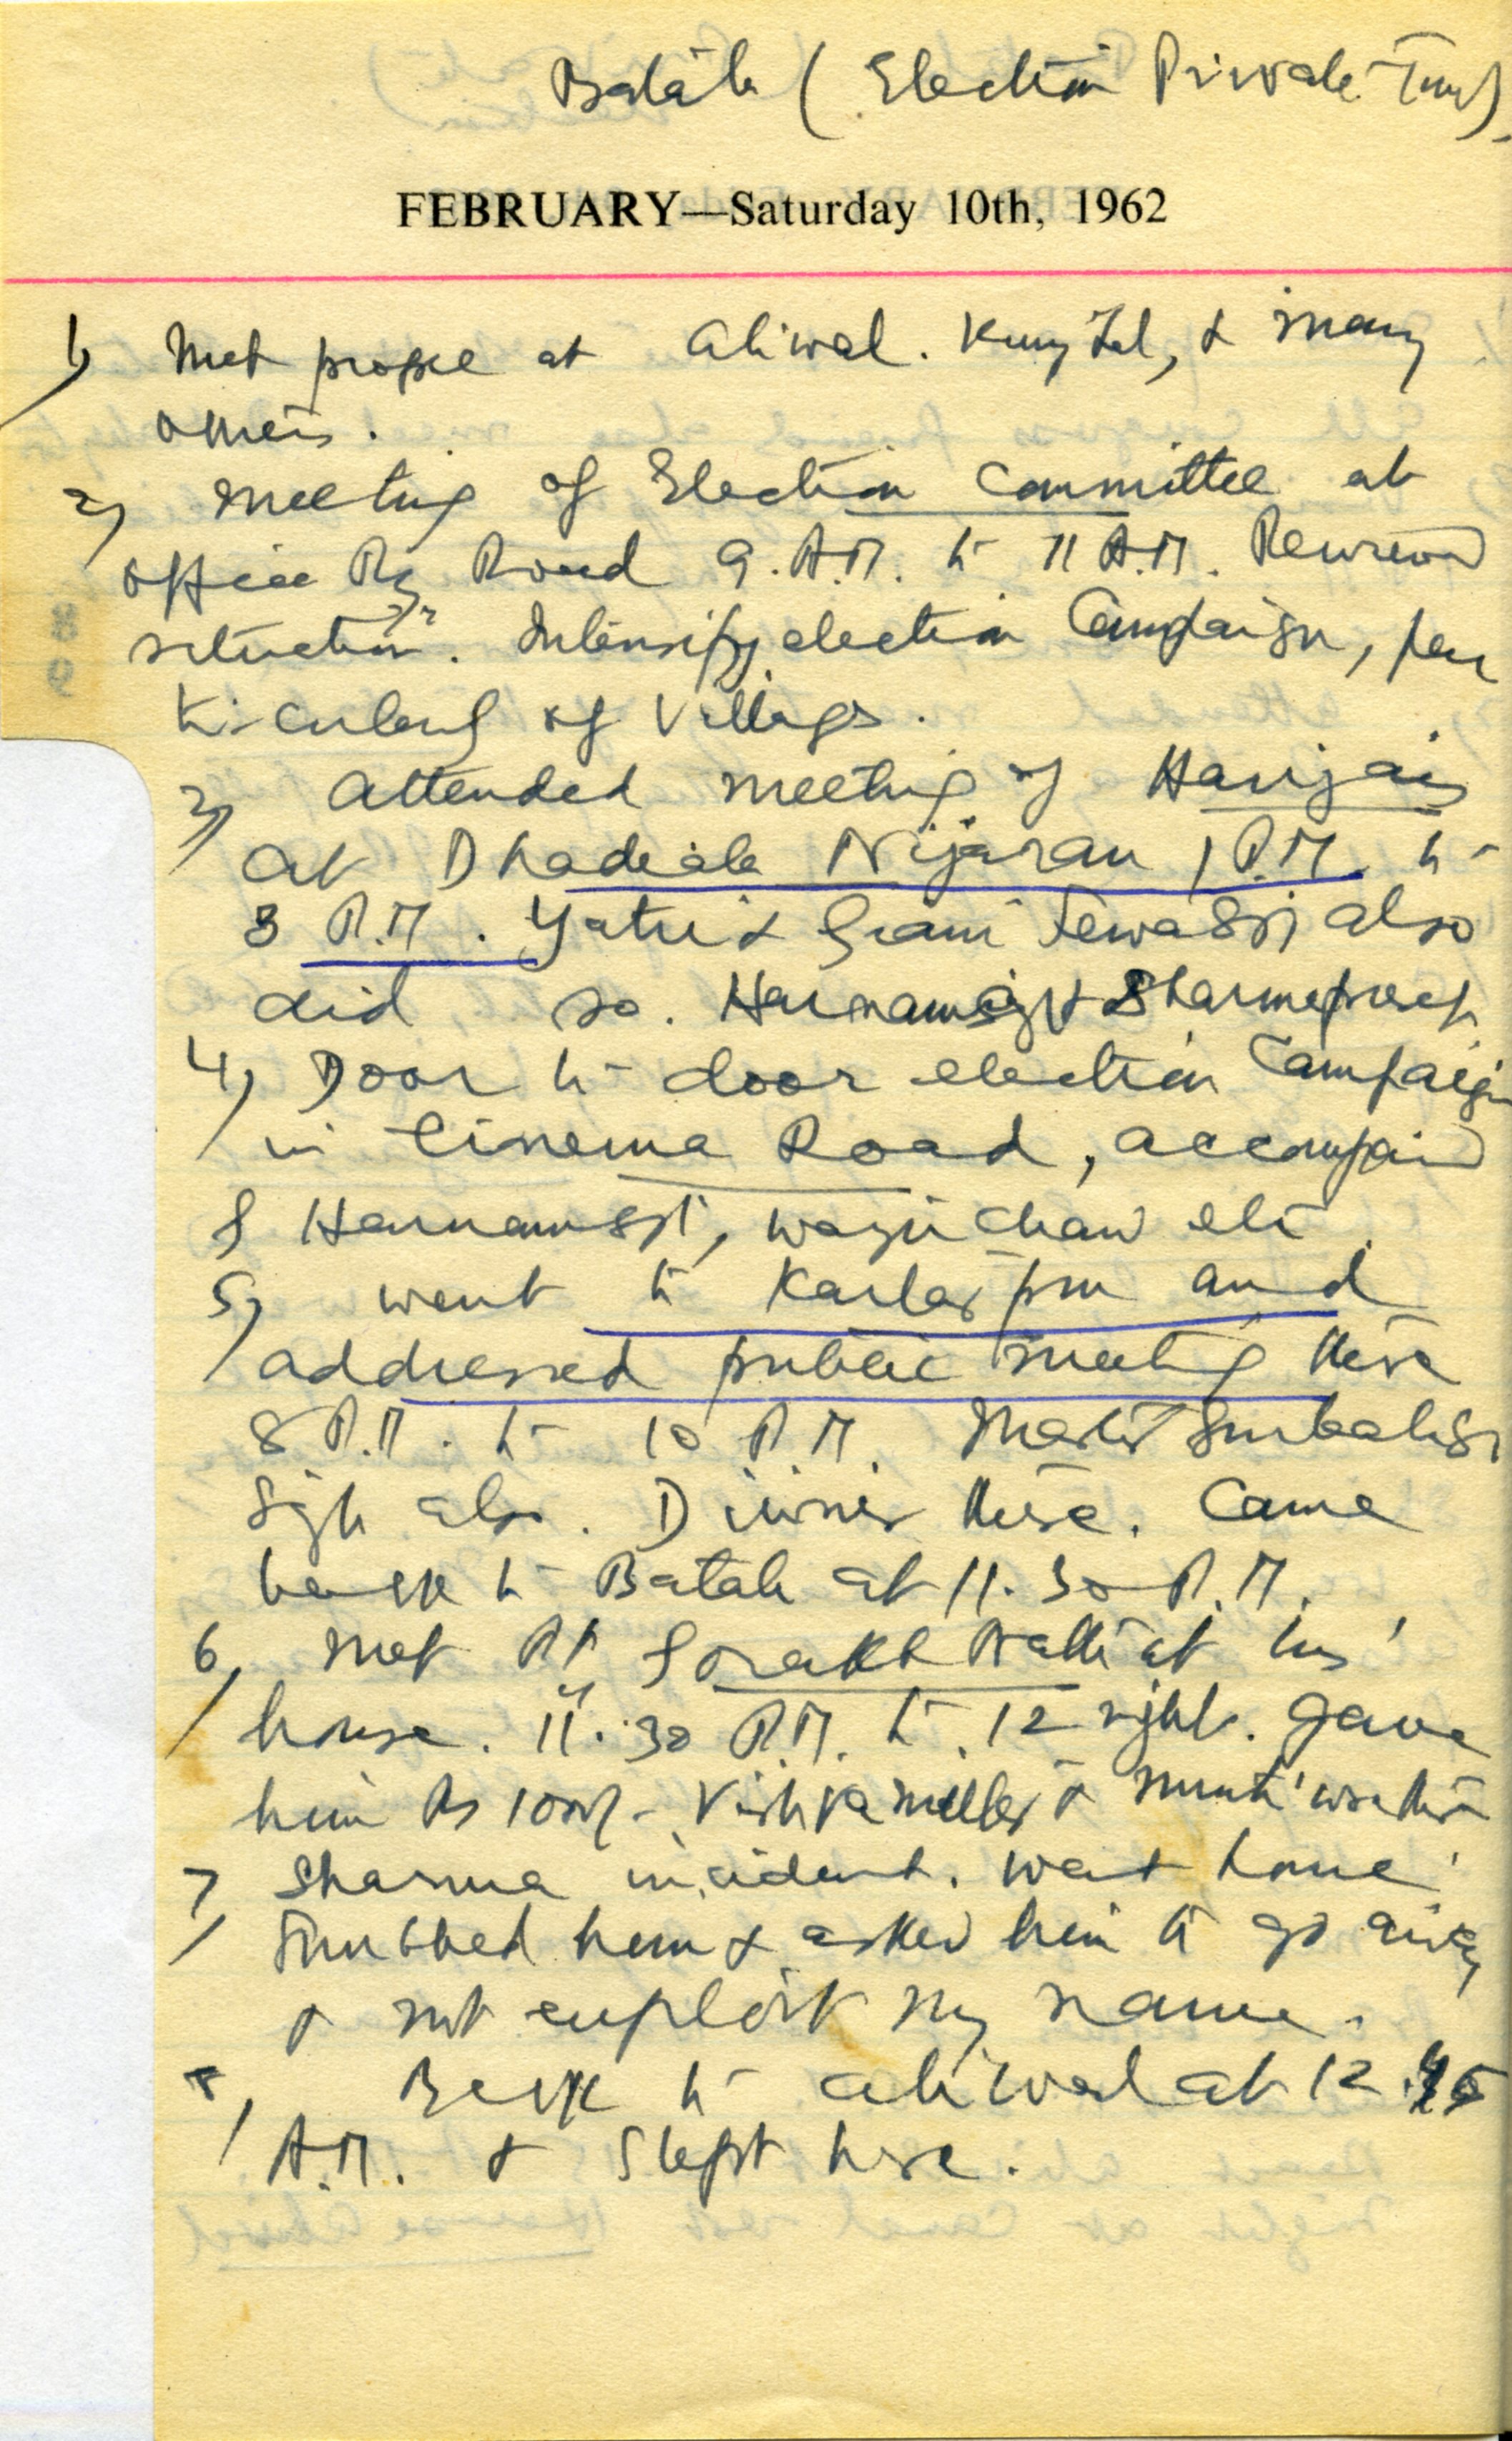 Batala (Election Private Tour).
FEBRUARY—Saturday 10th, 1962
1) Met people at Aliwal. & many
others.
2) Meeting of Election Committee at
office Rly Road 9. A.M. to 11 A.M. Reviewed
situation. Intensify election Campaign, par
ticularly of Villages.
3) Attended meeting of Harijans
at Dhadiala Nijaran 1 P.M. to
3 P.M. Yatri & Giani also
did so. Harnamsgh & Sharma
4) Door to door election Campaign
in Cinema Road, accompanied
by Harnam Sgh, Wazir Chand etc.
5) went to and
addressed public meeting there
8 P.M. to 10 P.M. Master
Sgh also. Dinner there. Came
back to Batala at 11.30 P.M.
6) Met Pt. Gorakh Nath at his
house. 11.30 P.M. to 12 night. Gave
him Rs Vishvamitter &
7) Sharma incident. Went home
Snubbed him & asked him to go away
& not exploit my name.
8) Back to Aliwal at 12.45
A.M. & Slept here.